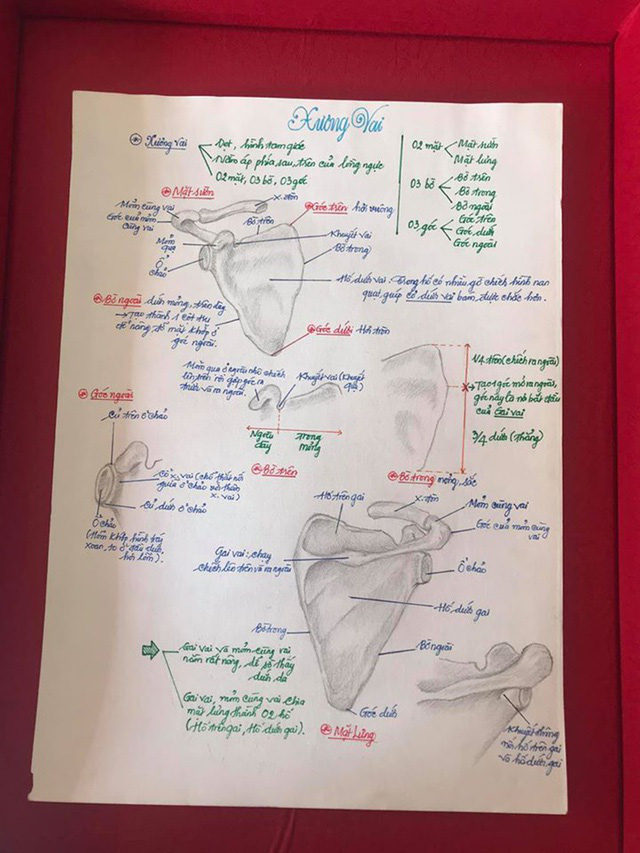 Xương Vai
Xương vai
Dẹt, hình tam giác
Nằm áp phía sau, trên của lồng ngực
02 mặt, 03 bờ, 03 góc
02 mặt
Mặt sườn
Mặt lưng
03 bờ
Bờ trên
Bờ trong
Bờ ngoài
03 góc
Góc trên
Góc dưới
Góc ngoài
Mặt sườn
Mỏm cùng vai
Góc của mỏm
cùng vai
Mỏm
quạ
Ổ
chảo
x. đòn
Bờ trên
Góc trên hơi vuông
Khuyết vai
Bờ trong
Hố dưới vai: Trong hố có nhiều gờ chếch hình nan
quạt, giúp cơ dưới vai bám được chắc hơn.
Bờ ngoài dưới mỏng, trên dày
→ Tạo thành 1 cột trụ
để nâng đỡ mặt khớp ở
góc ngoài.
Góc dưới Hơi tròn
Mỏm quạ ở ngoài nhô chếch
lên trên rồi gấp góc ra
trước và ra ngoài.
Khuyết vai (Khuyết
quạ)
Ngoài
dày
Trong
mỏng
Bờ trên
1/4 trên (chếch ra ngoài)
Tạo 1 góc mở ra ngoài,
góc này là nơi bắt đầu
của Gai vai
3/4 dưới (thẳng)
Bờ trong mỏng, sắc
Góc ngoài
Củ trên ổ chảo
Cổ x. vai (chỗ thắt nối
giữa ổ chảo với thân
x. vai)
Củ dưới ổ chảo
Ổ chảo
(Hõm khớp hình trái
xoan, to ở đầu dưới,
hơi lõm).
Hố trên gai
x. đòn
Mỏm cùng vai
Góc của mỏm cùng
vai
Gai vai: chạy
chếch lên trên và ra ngoài
Ổ chảo
Hố dưới gai
Bờ trong
Bờ ngoài
Góc dưới
Mặt Lưng
Gai vai và mỏm cùng vai
nằm rất nông, dễ sờ thấy
dưới da
Gai vai, mỏm cùng vai chia
mặt lưng thành 02 hố
(Hố trên gai, Hố dưới gai).
Khuyết thông
nối hố trên gai
và hố dưới gai